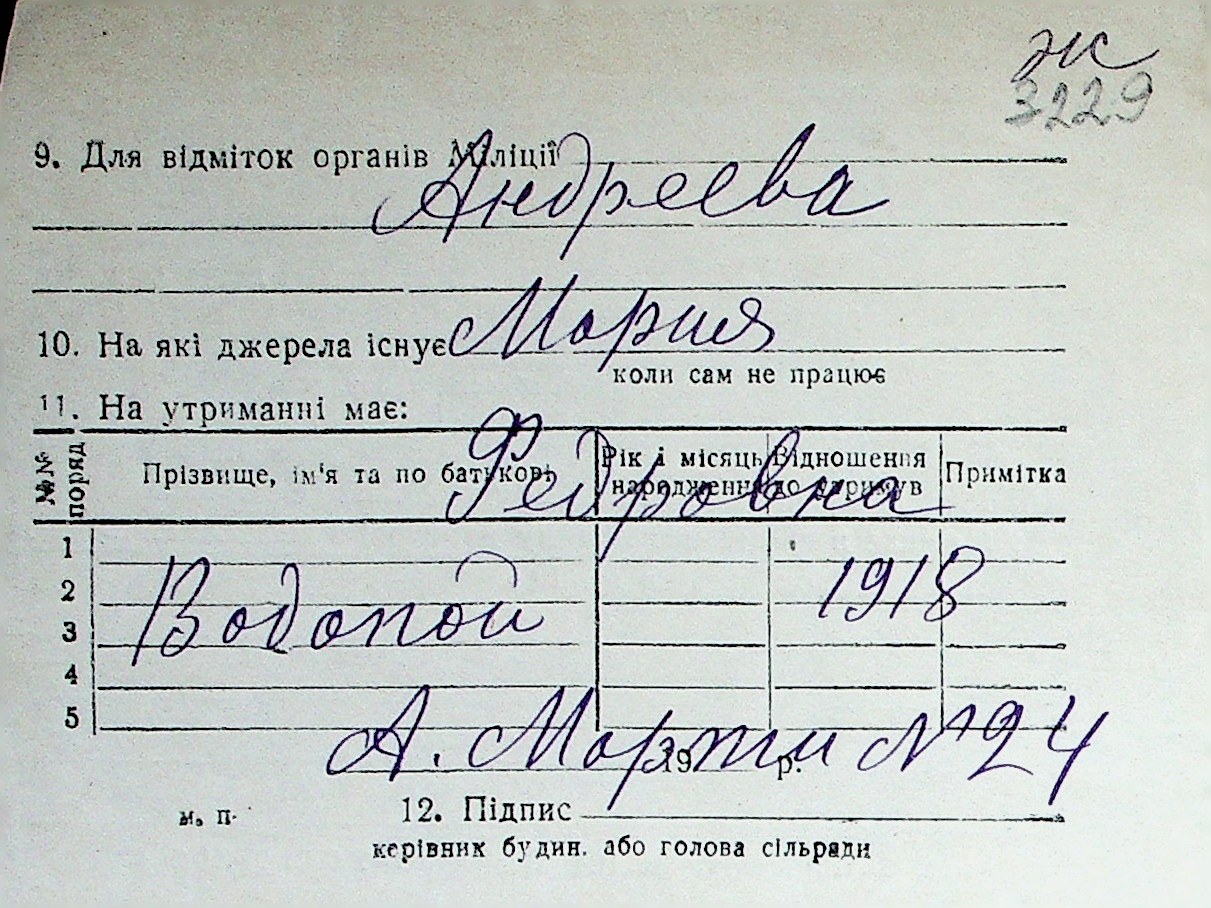 жс
3229
9. Для відміток органів Міліції
Андреева
Мария
10. На які джерела існує
коли сам не працює
11. На утриманні має:
Федровна
№№ поряд Прізвище, ім'я та по батькові Рік і місяць народження Відношення до отримув Примітка
1
1918
2
Водопой
3
4
5
А. Марти №24
19 р.
м. п. 12. Підпис
керівник будин. або голова сільради